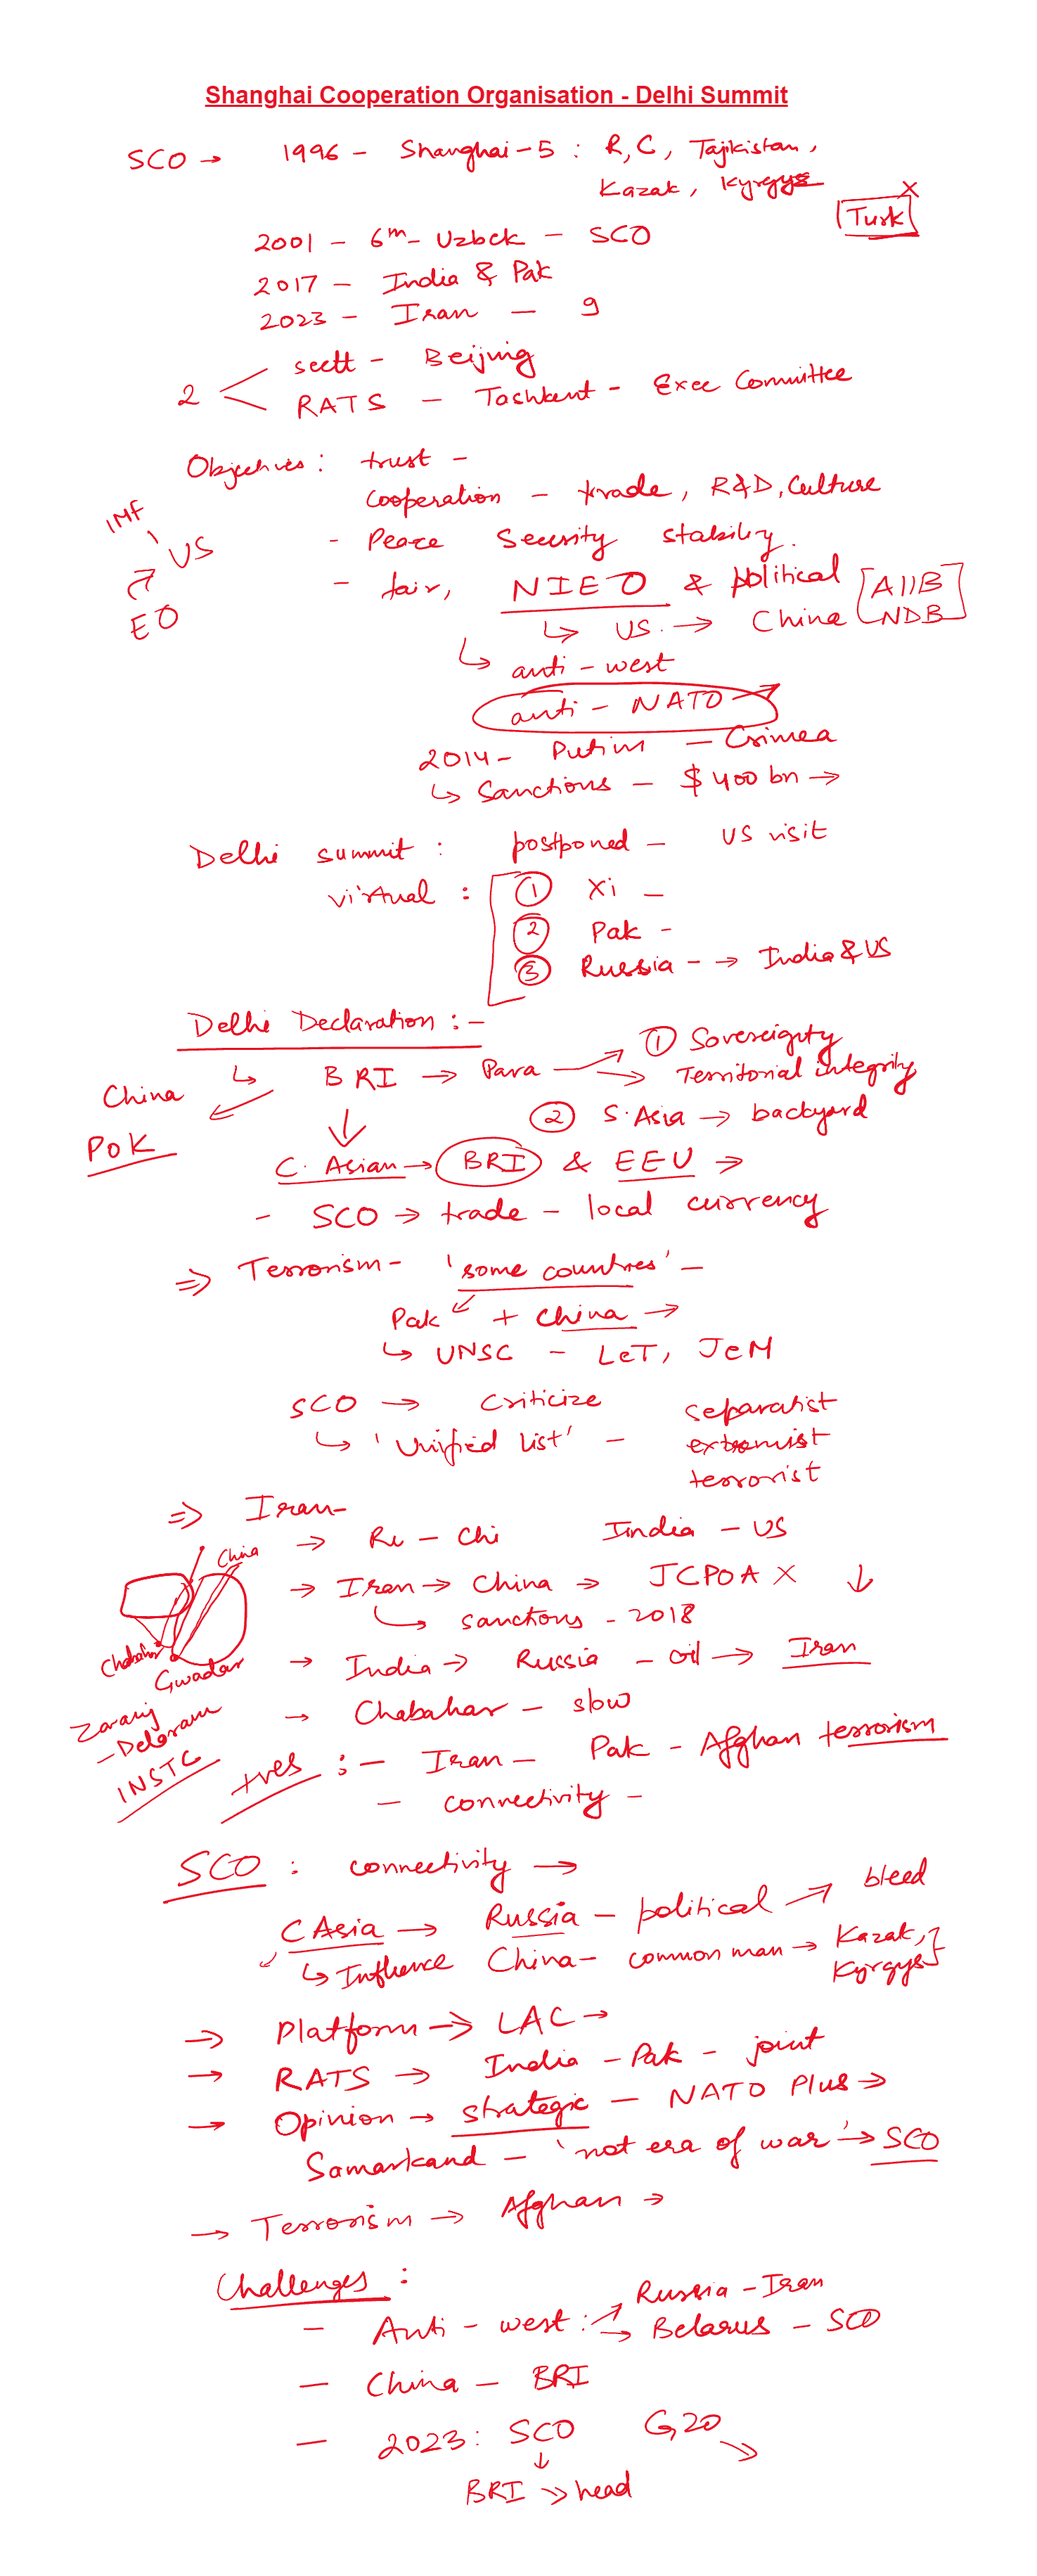 Shanghai Cooperation Organisation - Delhi Summit
SCO → 1996 - Shanghai-5 : R, C, Tajikistan,
Kazak, Kyrgys
Turk X
2001 - 6m - Uzbek - SCO
2017 - India & Pak
2023 - Iran - 9
2 < sectt - Beijing
RATS - Tashkent - Exec Committee
Objectives : trust -
cooperation - trade, R&D, Culture
- Peace Security stability.
IMF
US
EO
- fair, NIEO & political [AIIB
↳ US. → China NDB]
↳ anti - west
anti - NATO
2014 - Putin - Crimea
↳ Sanctions - $ 400 bn →
Delhi summit : postponed - US visit
virtual : ① Xi -
② Pak -
③ Russia - → India & US
Delhi Declaration : -
↳ BRI → Para → ① Sovereignty
Territorial integrity
China
PoK
② S. Asia → backyard
C. Asian → BRI & EEU →
- SCO → trade - local currency
⇒ Terrorism - 'some countries' -
Pak + China →
↳ UNSC - LeT, JeM
SCO → Criticize
↳ 'Unified list' - separatist
extremist
terrorist
⇒ Iran -
→ Ru - Chi India - US
China
→ Iran → China → JCPOA X ↓
↳ sanctions - 2018
Chabahar
Gwadar
→ India → Russia - oil → Iran
→ Chabahar - slow
Zaranj
- Delaram
INSTC
+ves : - Iran - Pak - Afghan terrorism
- connectivity -
SCO : connectivity →
C Asia → Russia - political → bleed
↳ Influence China - common man → Kazak,
Kyrgys}
→ Platform → LAC →
→ RATS → India - Pak - joint
→ Opinion → strategic - NATO Plus →
Samarkand - 'not era of war' → SCO
→ Terrorism → Afghan →
Challenges :
- Anti - west : → Russia - Iran
→ Belarus - SCO
- China - BRI
- 2023 : SCO G20
↓
BRI → head